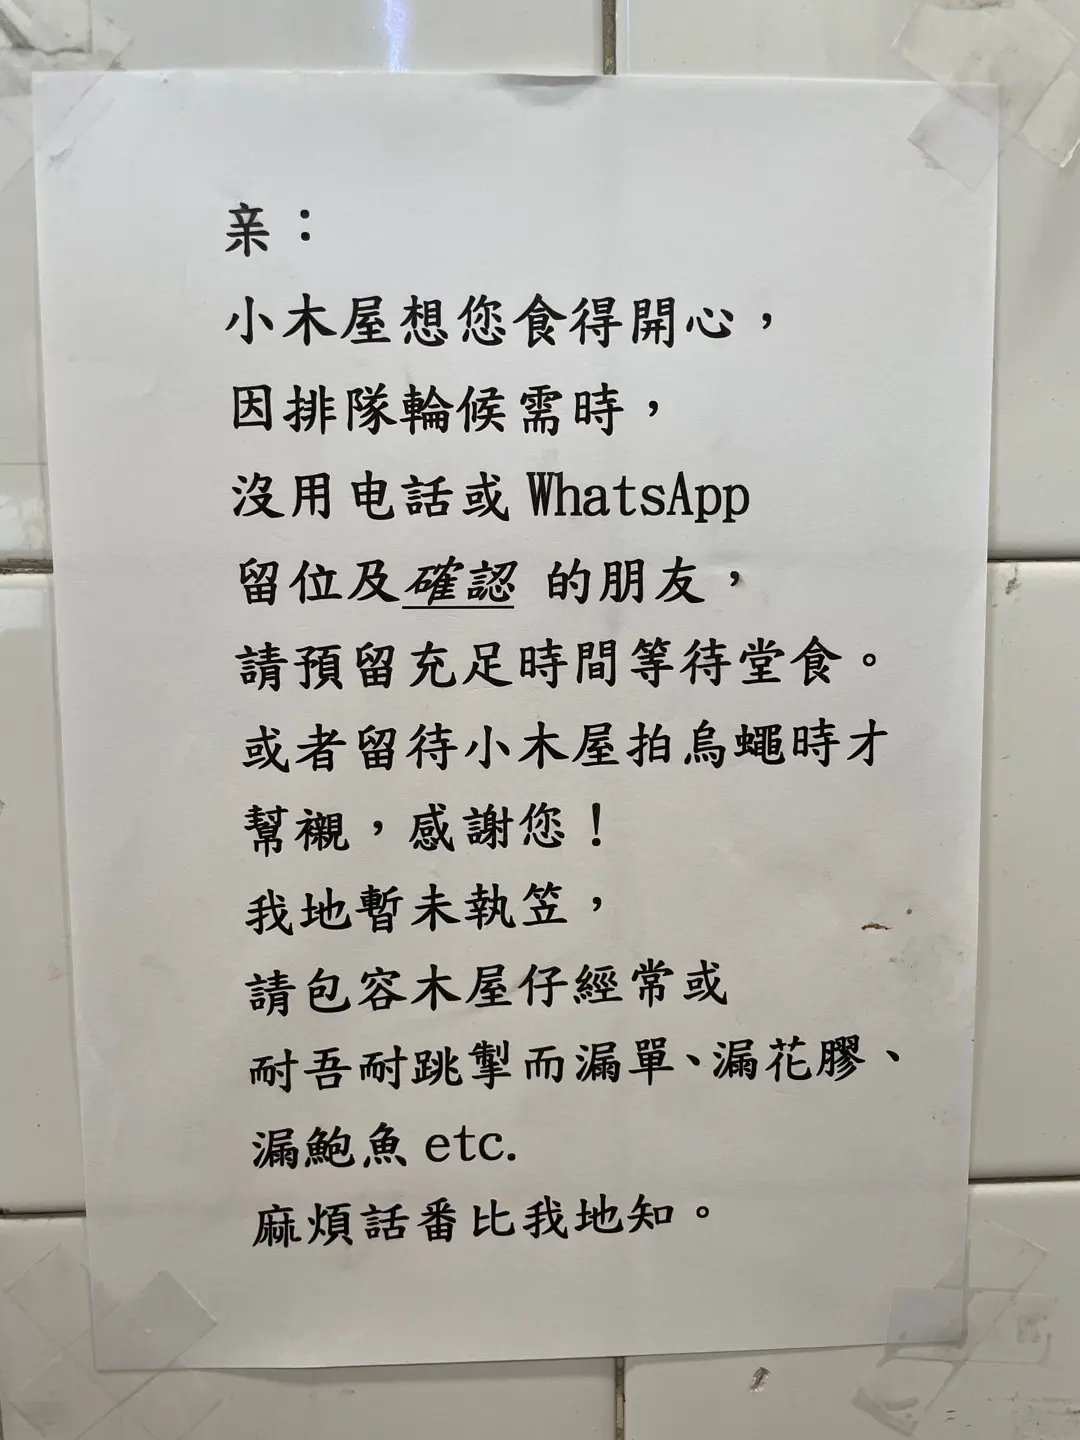 亲：
小木屋想您食得開心，
因排隊輪候需時，
沒用电話或 WhatsApp
留位及確認 的朋友，
請預留充足時間等待堂食。
或者留待小木屋拍烏蠅時才
幫襯，感謝您！
我地暫未執笠，
請包容木屋仔經常或
耐吾耐跳掣而漏單、漏花膠、
漏鮑魚 etc.
麻煩話番比我地知。